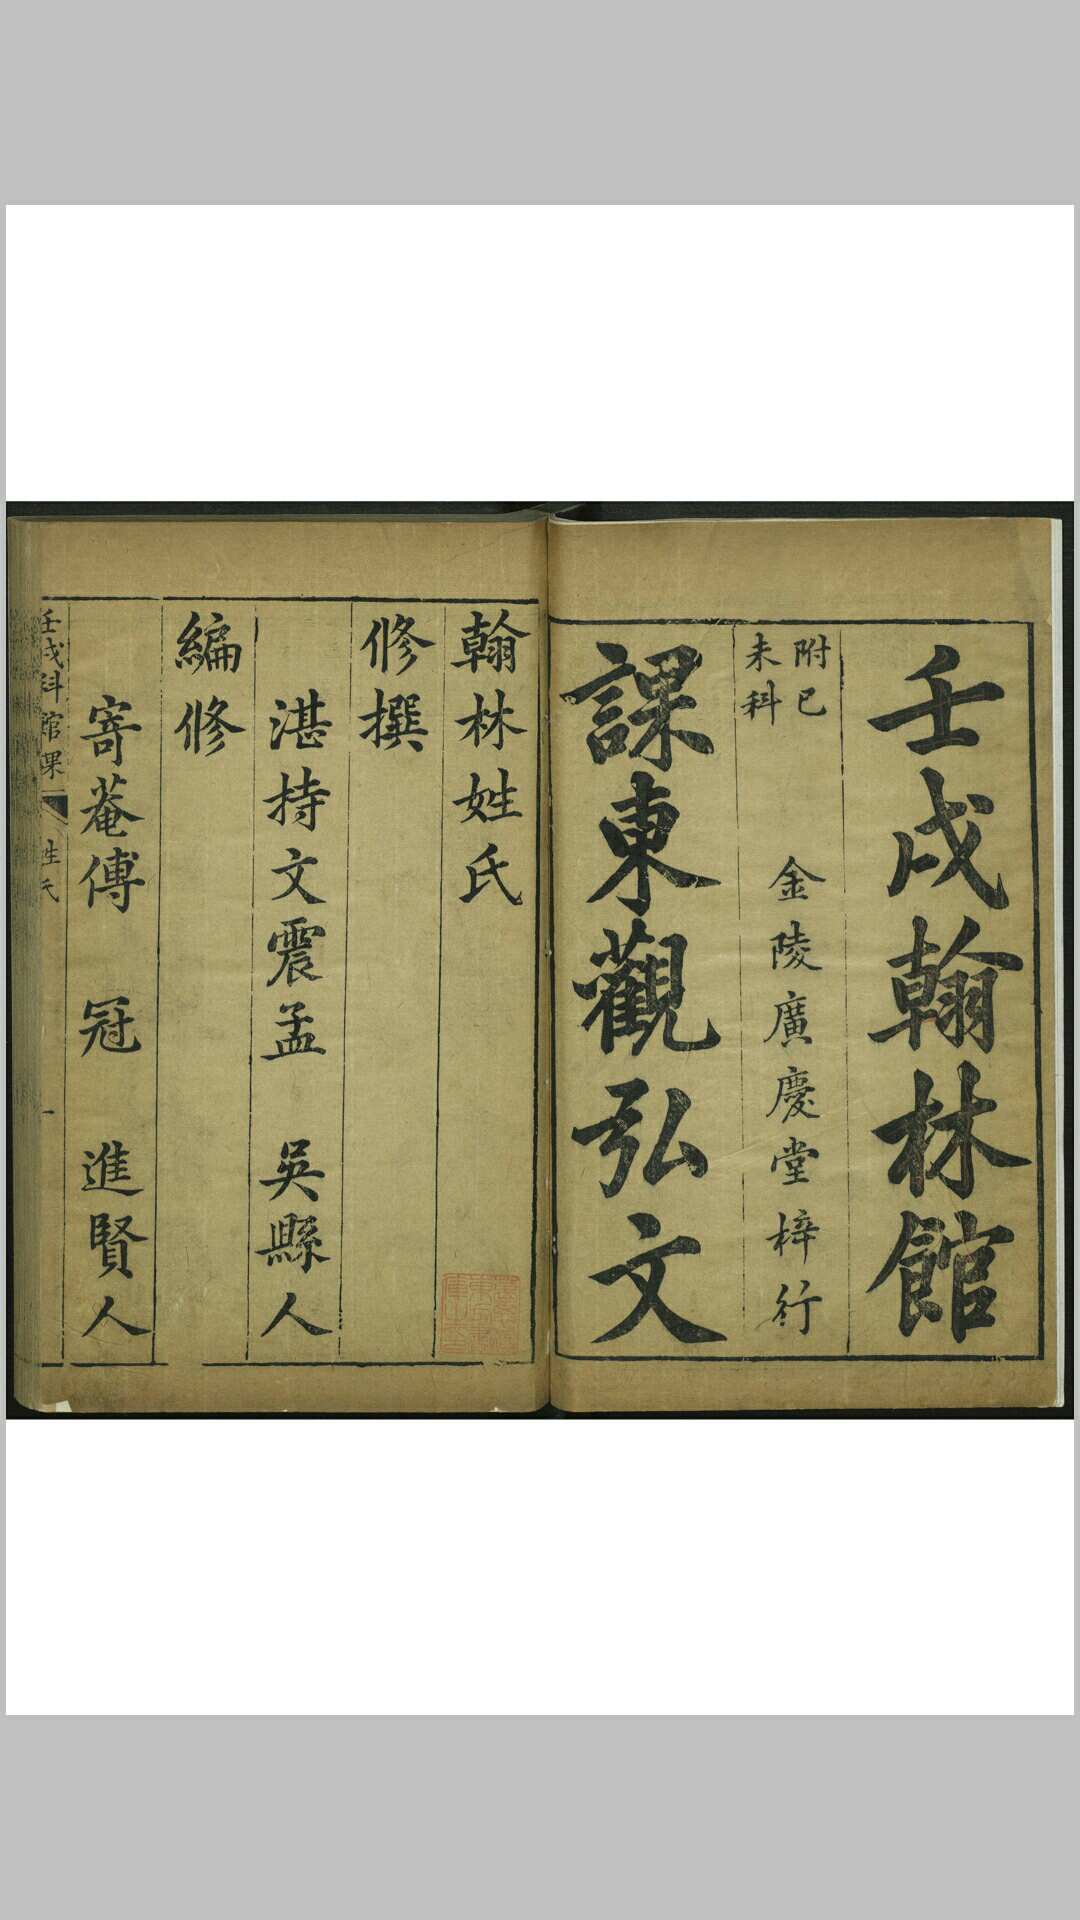 壬戌翰林館
附已
未科
金陵廣慶堂梓行
課東觀弘文
翰林姓氏
修撰
湛持文震孟 吳縣人
編修
寄菴傅 冠 進賢人
壬戌科館課 姓氏 一